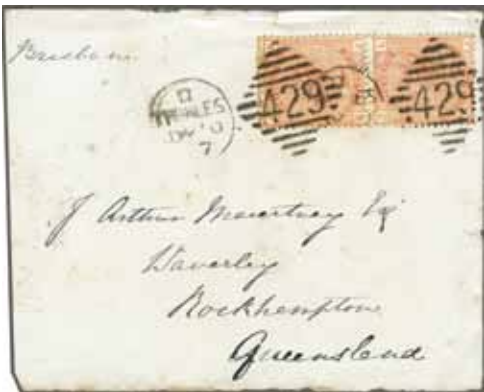 Brisbane
429
429
D
THURLES
7
J Arthur Macartney Esq
Waverley
Rockhampton
Queensland